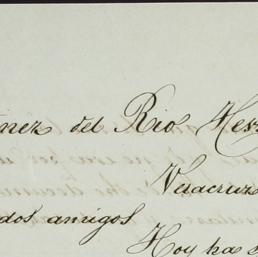 nez del Rio Her
Veracruz
dos amigos
Hoy ha